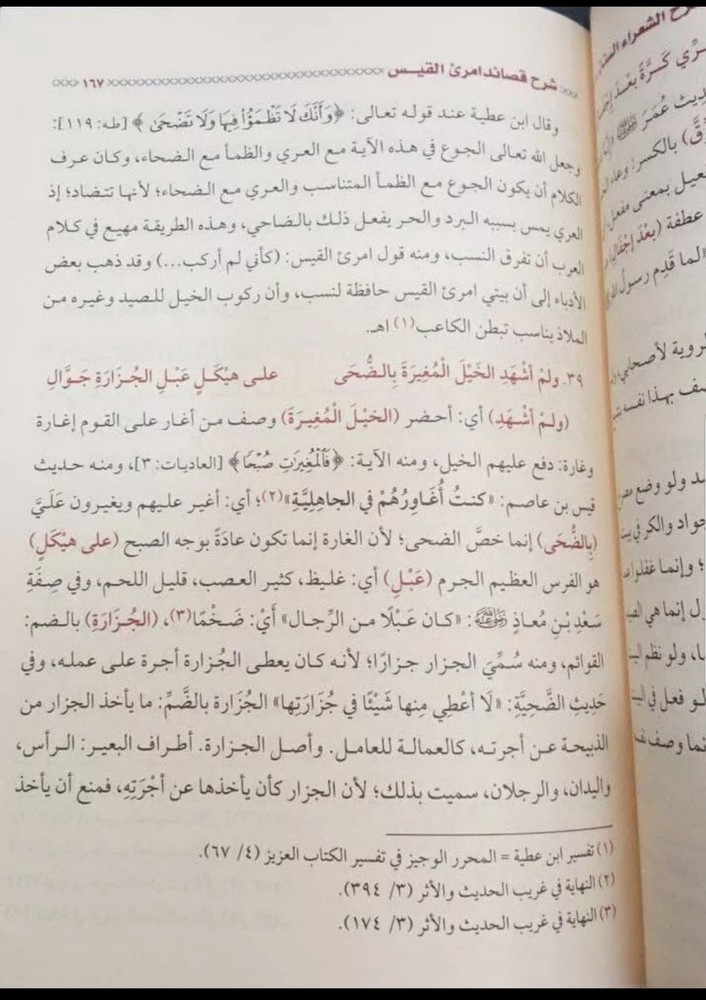 شرح قصائد امرئ القيس ١٦٧
وقال ابن عطية عند قوله تعالى: ﴿وَأَنَّكَ لَا تَظْمَؤُا فِيهَا وَلَا تَضْحَىٰ﴾ [طه: ١١٩]:
وجعل الله تعالى الجوع في هذه الآية مع العري والظمأ مع الضحاء، وكان عرف
الكلام أن يكون الجوع مع الظمأ المتناسب والعري مع الضحاء؛ لأنها تتضاد؛ إذ
العري يمس بسببه البرد والحر يفعل ذلك بالضاحي، وهذه الطريقة مهيع في كلام
العرب أن تفرق النسب، ومنه قول امرئ القيس: (كأني لم أركب...) وقد ذهب بعض
الأدباء إلى أن بيتي امرئ القيس حافظة لنسب، وأن ركوب الخيل للصيد وغيره من
الملاذ يناسب تبطن الكاعب(١) اهـ.
٣٩. ولمْ أشْهَدِ الخَيْلَ الْمُغِيرَةَ بِالضُّحَى على هيْكَلٍ عَبْلِ الجُزَارَةِ جَوَّالِ
(ولمْ أشْهَدِ) أي: أحضر (الخيْلَ الْمُغِيرَةَ) وصف من أغار على القوم إغارة
وغارة: دفع عليهم الخيل، ومنه الآية: ﴿فَالْمُغِيرَاتِ صُبْحًا﴾ [العاديات: ٣]، ومنه حديث
قيس بن عاصم: «كنتُ أُغَاوِرُهُمْ في الجاهِلِيَّةِ»(٢)؛ أي: أغير عليهم ويغيرون عَلَيَّ
(بِالضُّحَى) إنما خصَّ الضحى؛ لأن الغارة إنما تكون عادَةً بوجه الصبح (على هيْكَلٍ)
هو الفرس العظيم الجرم (عَبْلِ) أي: غليظ، كثير العصب، قليل اللحم، وفي صِفَةِ
سَعْدِ بْنِ مُعاذٍ رضي الله عنه: «كان عَبْلًا من الرِّجال» أيْ: ضَخْمًا(٣)، (الجُزَارَةِ) بالضم:
القوائم، ومنه سُمِّيَ الجزار جزارًا؛ لأنه كان يعطى الجُزارة أجرة على عمله، وفي
حَدِيثِ الضَّحِيَّةِ: «لَا أعْطِي مِنها شَيْئًا في جُزَارَتِها» الجُزَارة بالضَّمِّ: ما يأخذ الجزار من
الذبيحة عن أجرته، كالعمالة للعامل. وأصل الجزارة. أطراف البعير: الرأس،
واليدان، والرجلان، سميت بذلك؛ لأن الجزار كأن يأخذها عن أُجْرَتِهِ، فمنع أن يأخذ
(١) تفسير ابن عطية = المحرر الوجيز في تفسير الكتاب العزيز (٤/ ٦٧).
(٢) النهاية في غريب الحديث والأثر (٣/ ٣٩٤).
(٣) النهاية في غريب الحديث والأثر (٣/ ١٧٤).